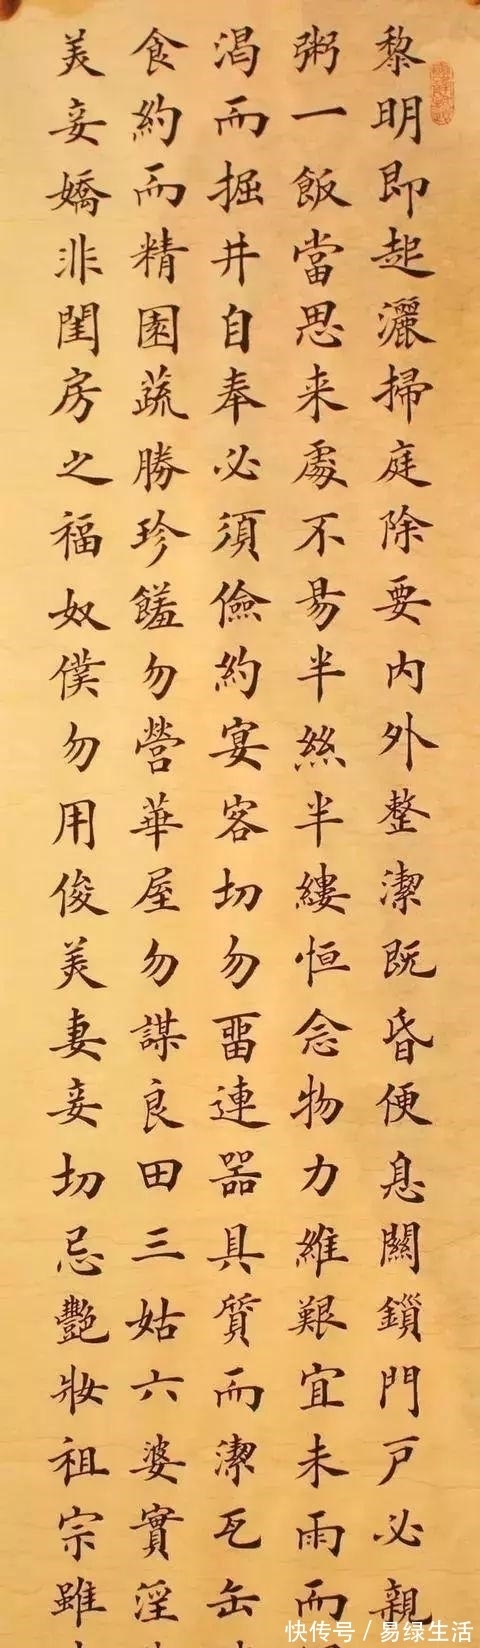 黎明即起灑掃庭除要内外整潔既昏便息關鎖門戶必親
粥一飯當思来處不易半絲半縷恒念物力維艱宜未雨而
渴而掘井自奉必須儉約宴客切勿畱連器具質而潔瓦缶
食約而精園蔬勝珍饈勿營華屋勿謀良田三姑六婆實淫
美妾嬌非閨房之福奴僕勿用俊美妻妾切忌艷妝祖宗雖
快传号/易绿生活